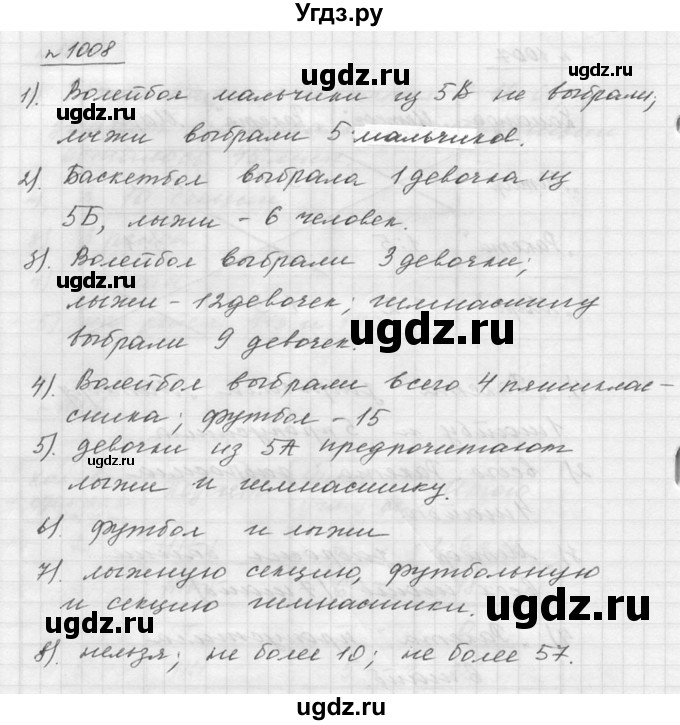 Угдз.ру
n 1008
1). Волейбол мальчики из 5В не выбрали;
лыжи выбрали 5 мальчиков.
ugdz.ru
2). Баскетбол выбрала 1 девочка из
5Б, лыжи - 6 человек.
ugdz.ru
3). Волейбол выбрали 3 девочки;
лыжи - 12 девочек; гимнастику
выбрали 9 девочек.
ugdz.ru
4). Волейбол выбрали всего 4 пятиклас-
сника; футбол - 15
ugdz.ru
5). девочки из 5А предпочитают
лыжи и гимнастику.
ugdz.ru
6). футбол и лыжи
7). лыжную секцию, футбольную
и секцию гимнастики.
ugdz.ru
ugdz.ru
8). нельзя; не более 10; не более 57.
ugdz.ru
ugdz.ru